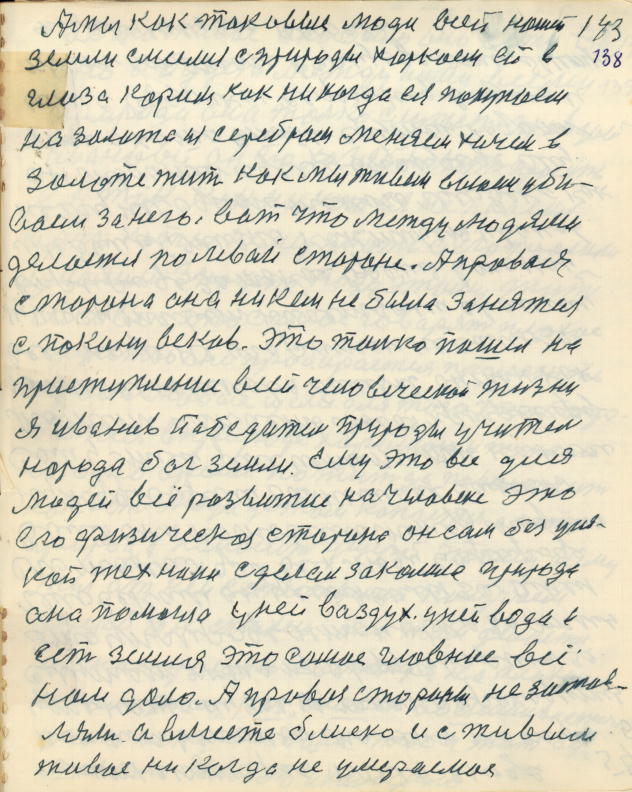 А мы как таковые люди всей нашей 183
земли смелия с природы харкаем ей в 138
глаза корим как никогда ея покупаем
на золота и серебром меняем хочем в
золоте жит как мы живем воюем уби-
ваем за него. вот что между людями
делается по левай стороне. А правая
сторона она никем не была занятая
с покону веков. Это толко пошел на
приступление всей человеческой жизни
я иванов Победител природы учител
народа бог земли. Ему это все для
людей всё развитие на чиловеке это
его физическоя сторона он сам без уся-
кой техники сделал закалила природа
она помогла у ней ваздух. у ней вода и
ест земля это самое главное всё
нам дало. А правая стороны не застав-
ляли. а вместе блиско и с живым
живое ни когда не умераемое